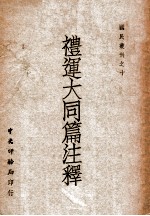 國民叢刊之十
禮運大同篇注釋
中央印務局印行